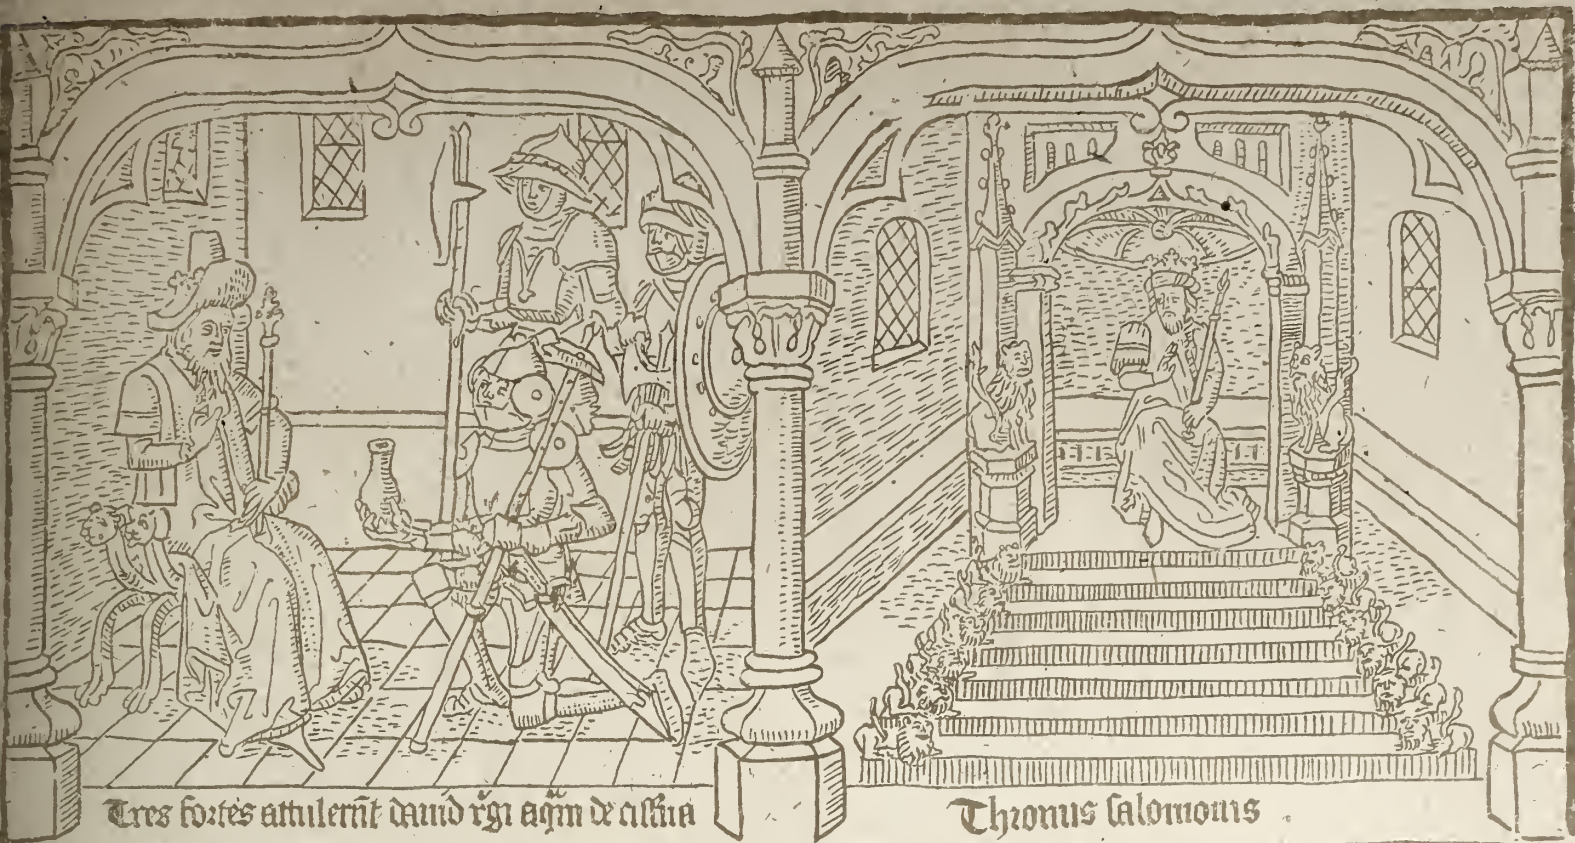 Tres fortes attulerũt dauid rͥgi aqᷓm de cisterna
Thronus salomonis .